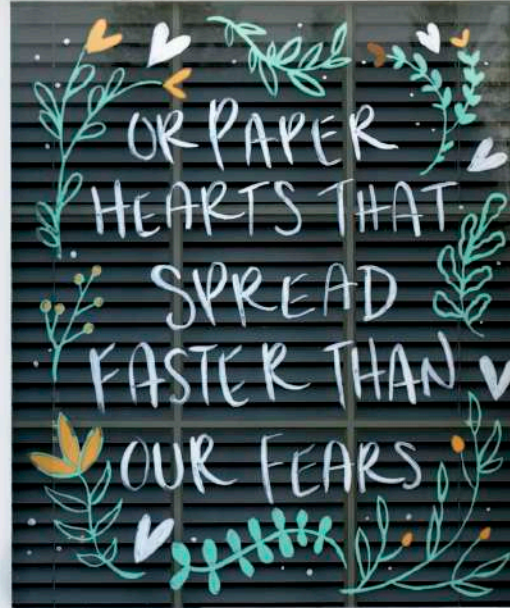 OR PAPER
HEARTS THAT
SPREAD
FASTER THAN
OUR FEARS